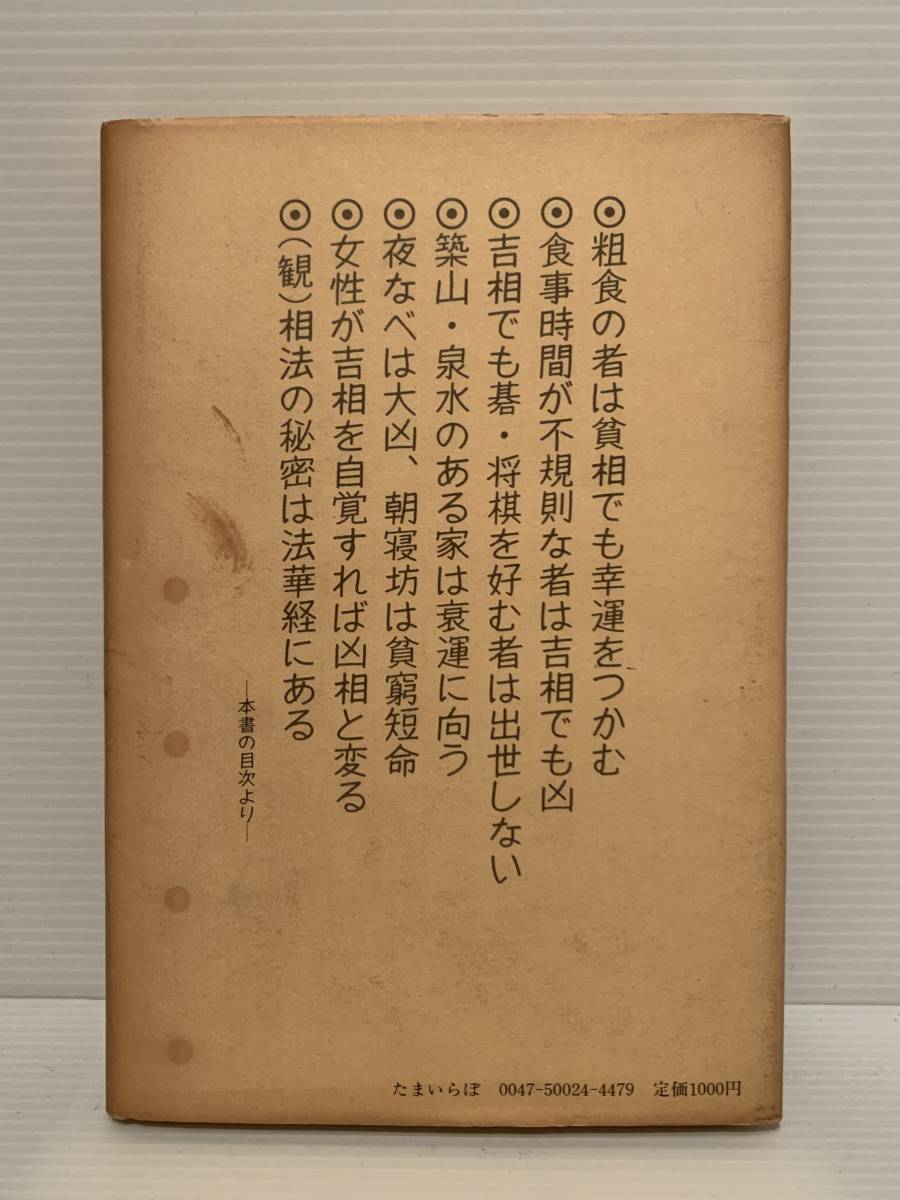 ◉粗食の者は貧相でも幸運をつかむ
◉食事時間が不規則な者は吉相でも凶
◉吉相でも碁・将棋を好む者は出世しない
◉築山・泉水のある家は衰運に向う
◉夜なべは大凶、朝寝坊は貧窮短命
◉女性が吉相を自覚すれば凶相と変る
◉(観)相法の秘密は法華経にある
—本書の目次より—
たまいらぼ 0047-50024-4479 定価1000円